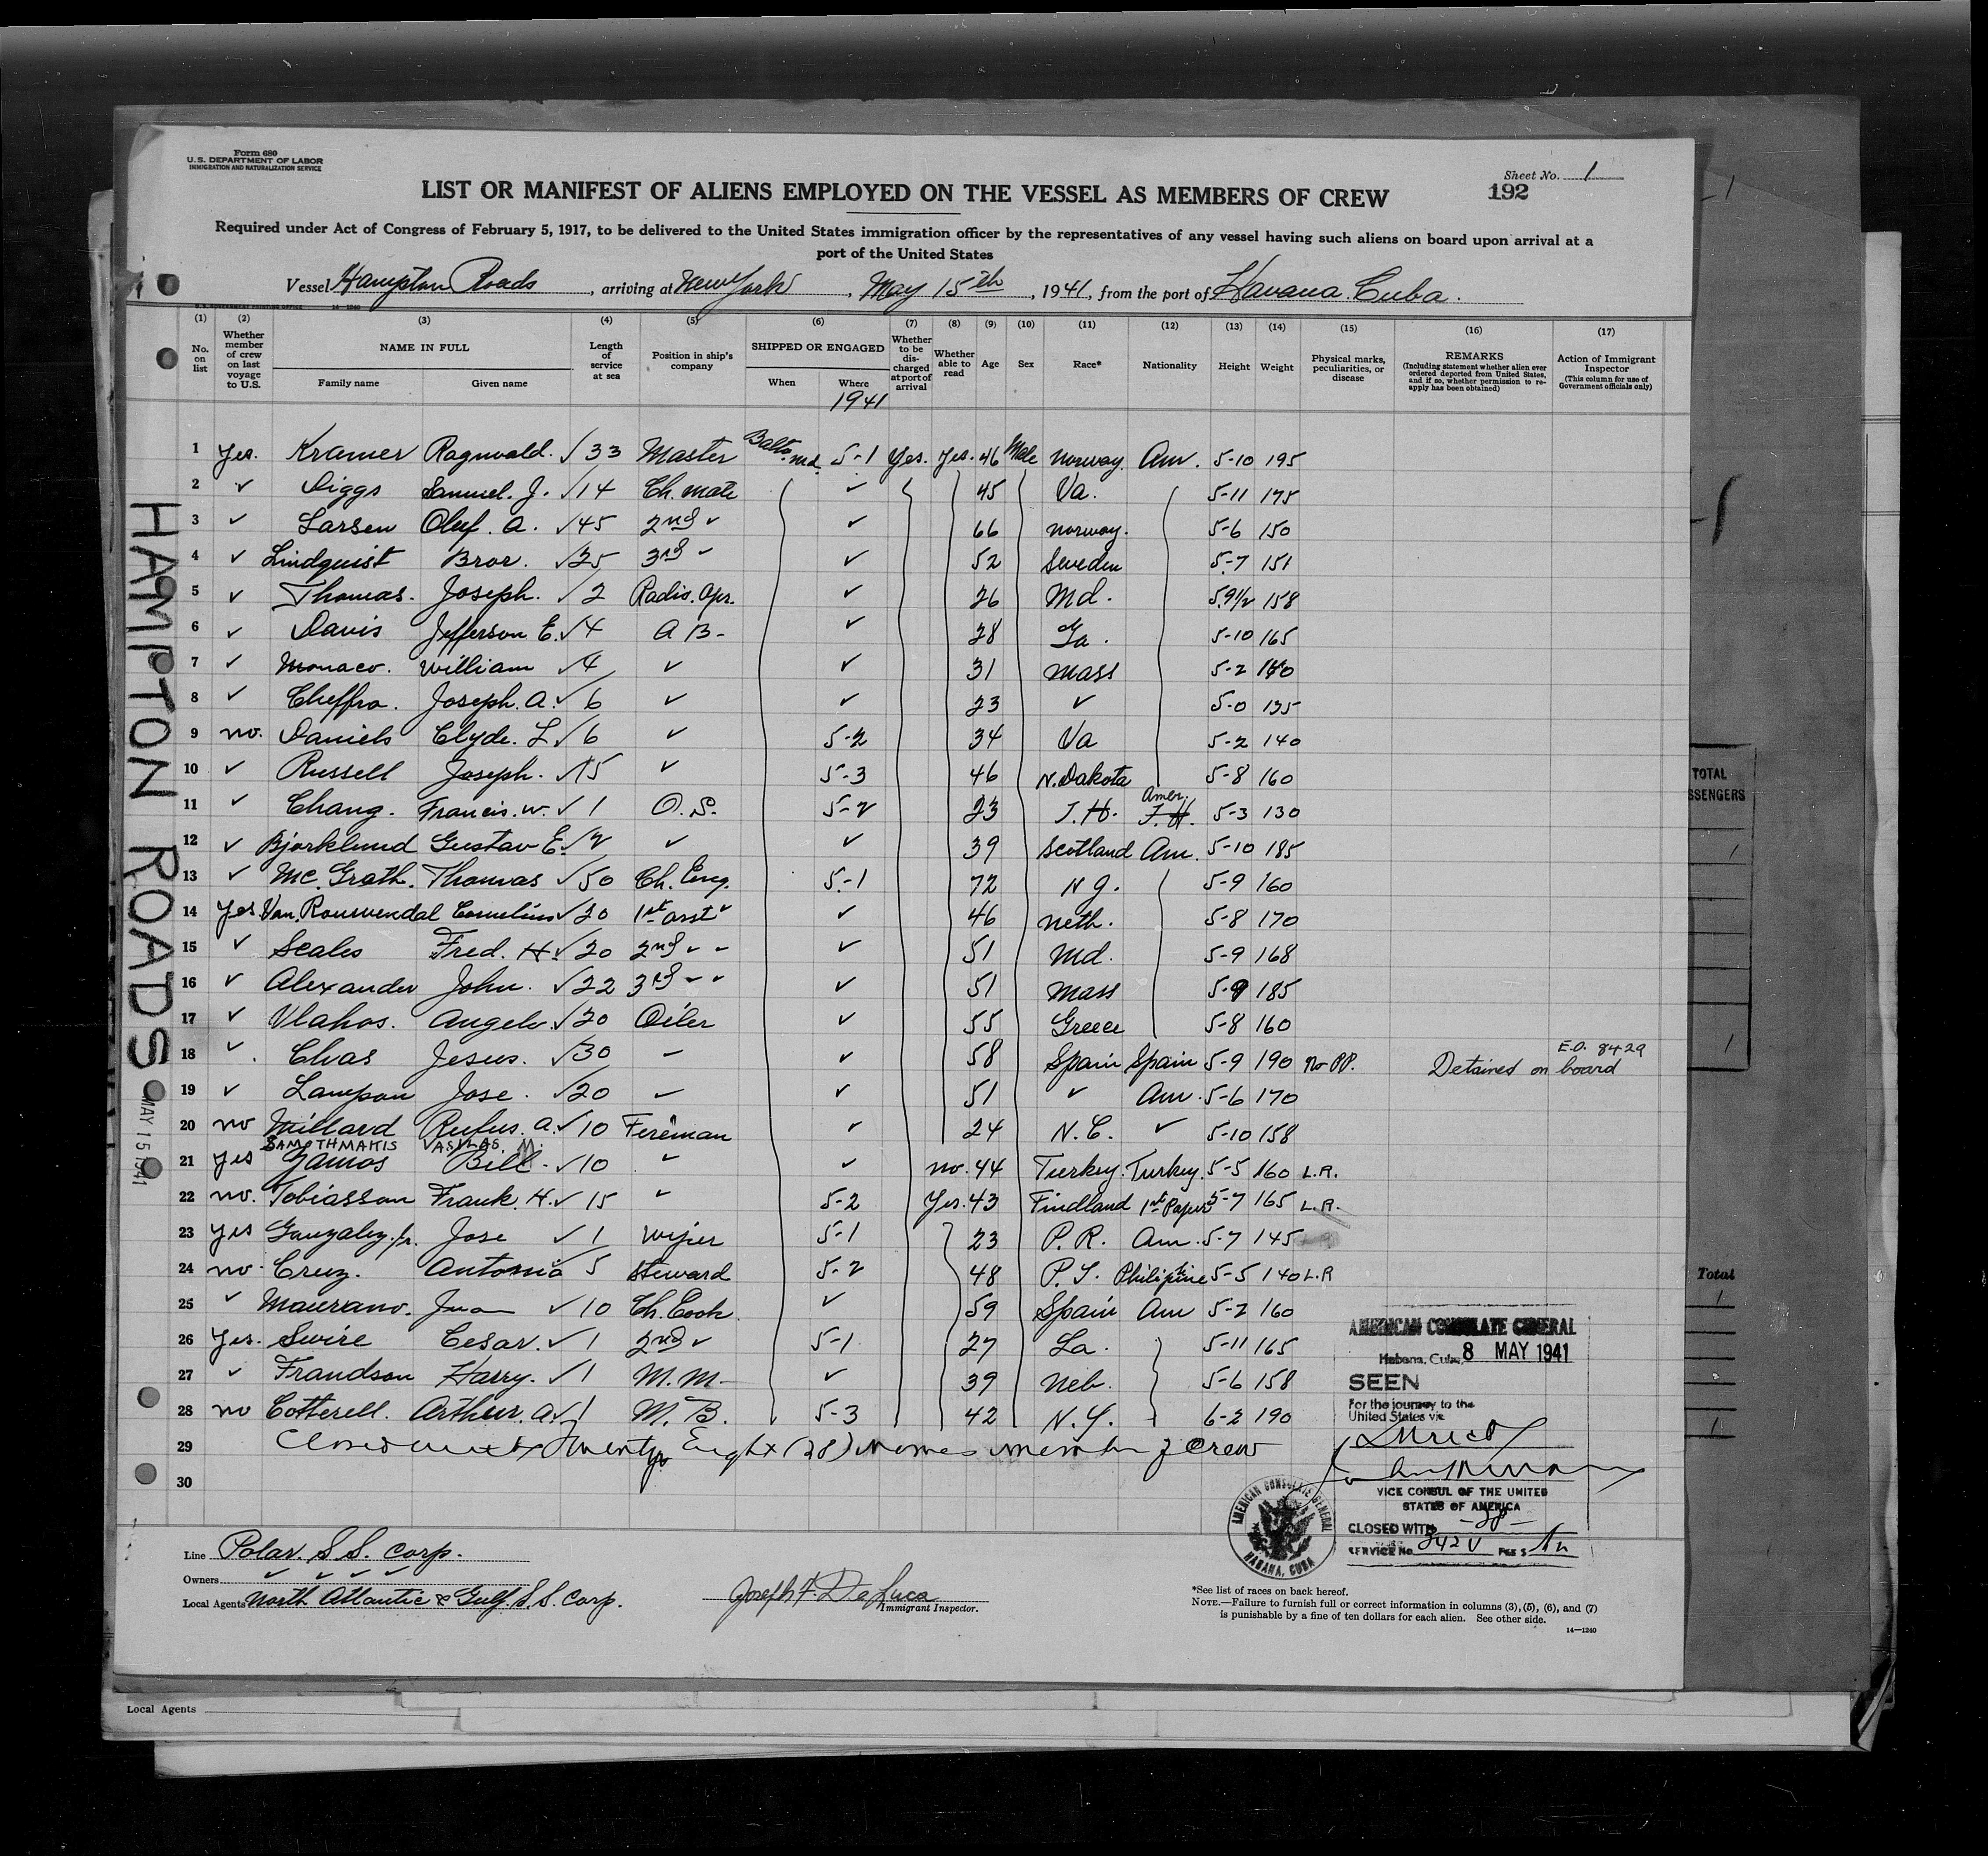 Form 680
U.S. DEPARTMENT OF LABOR
IMMIGRATION AND NATURALIZATION SERVICE
Sheet No. 1
192
LIST OR MANIFEST OF ALIENS EMPLOYED ON THE VESSEL AS MEMBERS OF CREW
Required under Act of Congress of February 5, 1917, to be delivered to the United States immigration officer by the representatives of any vessel having such aliens on board upon arrival at a
port of the United States
Vessel Hampton Roads, arriving at New York, May 15th, 1941, from the port of Havana. Cuba.
(1) (2) (3) (4) (5) (6) (7) (8) (9) (10) (11) (12) (13) (14) (15) (16) (17)
No. on list
Whether member of crew on last voyage to U.S.
NAME IN FULL
Family name Given name
Length of service at sea
Position in ship's company
SHIPPED OR ENGAGED
When Where
1941
Whether to be discharged at port of arrival
Whether able to read
Age
Sex
Race*
Nationality
Height
Weight
Physical marks, peculiarities, or disease
REMARKS
(Including statement whether alien ever ordered deported from United States, and if so, whether permission to reapply has been obtained)
Action of Immigrant Inspector
(This column for use of Government officials only)
1 Yes. Kramer Ragnvald. ✓ 33 Master Balto. Md. 5-1 Yes. Yes. 46 Male Norway. Am. 5-10 195
2 ✓ Diggs Samuel. J. ✓ 14 Ch. Mate ✓ 45 Va. 5-11 175
3 ✓ Larsen Oluf. A. ✓ 45 2nd ✓ ✓ 66 Norway. 5-6 150
4 ✓ Lindquist Bror. ✓ 25 3rd ✓ ✓ 52 Sweden 5-7 151
5 ✓ Thomas. Joseph. ✓ 2 Radio. Opr. ✓ 26 Md. 5.9½ 158
6 ✓ Davis Jefferson E. ✓ 4 A B- ✓ 28 Ga. 5-10 165
7 ✓ Monaco. William ✓ 4 ✓ ✓ 31 Mass 5-2
8 ✓ Cheffro. Joseph. A. ✓ 6 ✓ ✓ 23 ✓ 5-0 135
9 no. Daniels Clyde. L ✓ 6 ✓ 5-2 34 Va 5-2 140
10 ✓ Russell Joseph. ✓ 15 ✓ 5-3 46 N. Dakota 5-8 160
11 ✓ Chang. Francis. W. ✓ 1 O.S. 5-2 23 T.H. Amer. T.H. 5-3 130
12 ✓ Bjorklund Gustav E. ✓ 2 ✓ ✓ 39 Scotland Am. 5-10 185
13 ✓ Mc. Grath. Thomas ✓ 50 Ch. Eng. 5-1 72 N J. 5-9 160
14 Yes Van. Rouwendal Cornelius ✓ 20 1st asst ✓ ✓ 46 Neth. 5-8 170
15 ✓ Scales Fred. H. ✓ 20 2nd ✓ - ✓ 51 Md. 5-9 168
16 ✓ Alexander John. ✓ 22 3rd - ✓ ✓ 51 Mass 5-9 185
17 ✓ Vlahos. Angelo. ✓ 20 Oiler ✓ 55 Greece 5-8 160
18 ✓ Chas Jesus. ✓ 30 - ✓ 58 Spain Spain 5-9 190 No PP. Detained on board E.O. 8429
19 ✓ Lampon Jose. ✓ 20 - ✓ 51 ✓ Am. 5-6 170
20 no Millard Rufus. A. ✓ 10 Fireman ✓ 24 N.C. ✓ 5-10 158
SAMOTHMAKIS VASILAS. M.
21 Yes Zamos Bill. ✓ 10 ✓ ✓ no. 44 Turkey. Turkey. 5-5 160 L.R.
22 no. Tobiasson Frank. H. ✓ 15 ✓ 5-2 Yes. 43 Findland 1st Papers 5-7 165 L.R.
23 Yes Gonzalez. Jr. Jose ✓ 1 Wiper 5-1 23 P.R. Am. 5-7 145
24 no. Cruz. Antonio ✓ 5 Steward 5-2 48 P.I. Philipine 5-5 140 L.R
25 ✓ Maurano. Juan ✓ 10 Ch. Cook ✓ 59 Spain Am 5-2 160
26 Yes. Swire Cesar. ✓ 1 2nd ✓ 5-1 27 La. 5-11 165
27 ✓ Frandson Harry. ✓ 1 M.M- ✓ 39 Neb. 5-6 158
28 no Cotterell. Arthur. A. ✓ 1 M.B. 5-3 42 N.Y. 6-2 190
29 Closed with Twenty Eight (28) names member of crew
30
HAMPTON ROADS
MAY 15 1941
AMERICAN CONSULATE GENERAL
Habana, Cuba, 8 MAY 1941
SEEN
For the journey to the
United States via
Direct
VICE CONSUL OF THE UNITED
STATES OF AMERICA
CLOSED WITH -28-
SERVICE No. 3420 FEE $
AMERICAN CONSULATE GENERAL
HABANA, CUBA
Line Polar. S.S. Corp.
Owners ✓ ✓ ✓ ✓
Local Agents North Atlantic & Gulf. S.S. Corp.
Joseph F. De Luca
Immigrant Inspector.
*See list of races on back hereof.
NOTE.—Failure to furnish full or correct information in columns (3), (5), (6), and (7)
is punishable by a fine of ten dollars for each alien. See other side.
14—1240
TOTAL
SSENGERS
Total
Local Agents